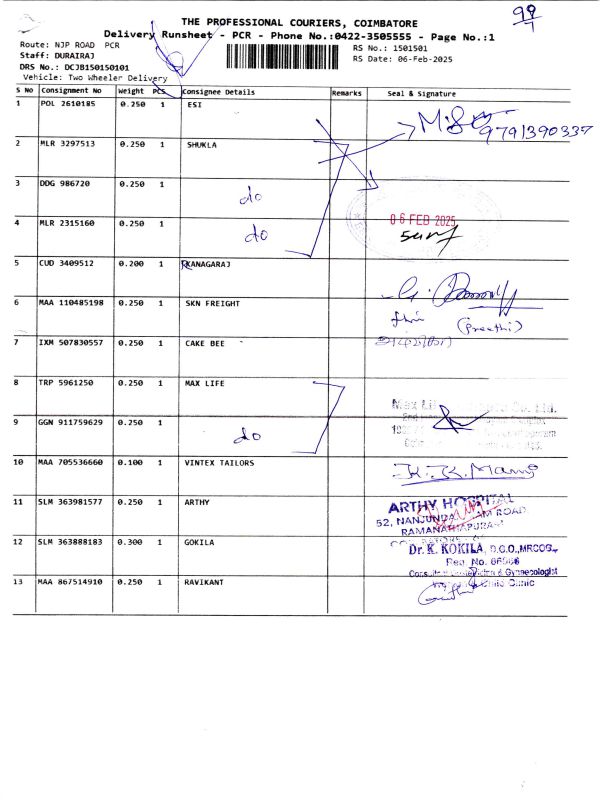 99/1
THE PROFESSIONAL COURIERS, COIMBATORE
Delivery Runsheet - PCR - Phone No.:0422-3505555 - Page No.:1
Route: NJP ROAD PCR
Staff: DURAIRAJ
DRS No.: DCJB150150101
Vehicle: Two Wheeler Delivery
RS No.: 1501501
RS Date: 06-Feb-2025
S No Consignment No Weight PCS Consignee Details Remarks Seal & Signature
1 POL 2610185 0.250 1 ESI
9791390337
2 MLR 3297513 0.250 1 SHUKLA
3 DDG 986720 0.250 1 do
4 MLR 2315160 0.250 1 do 06 FEB 2025
5 CUD 3409512 0.200 1 KANAGARAJ
6 MAA 110485198 0.250 1 SKN FREIGHT
(Preethi)
7 IXM 507830557 0.250 1 CAKE BEE
8 TRP 5961250 0.250 1 MAX LIFE
9 GGN 911759629 0.250 1 do
10 MAA 705536660 0.100 1 VINTEX TAILORS K.K.Mani
11 SLM 363981577 0.250 1 ARTHY ARTHY HOSPITAL
RAMANATHAPURAM
12 SLM 363888183 0.300 1 GOKILA
Dr. K. KOKILA, D.G.O.,MRCOG.,
13 MAA 867514910 0.250 1 RAVIKANT